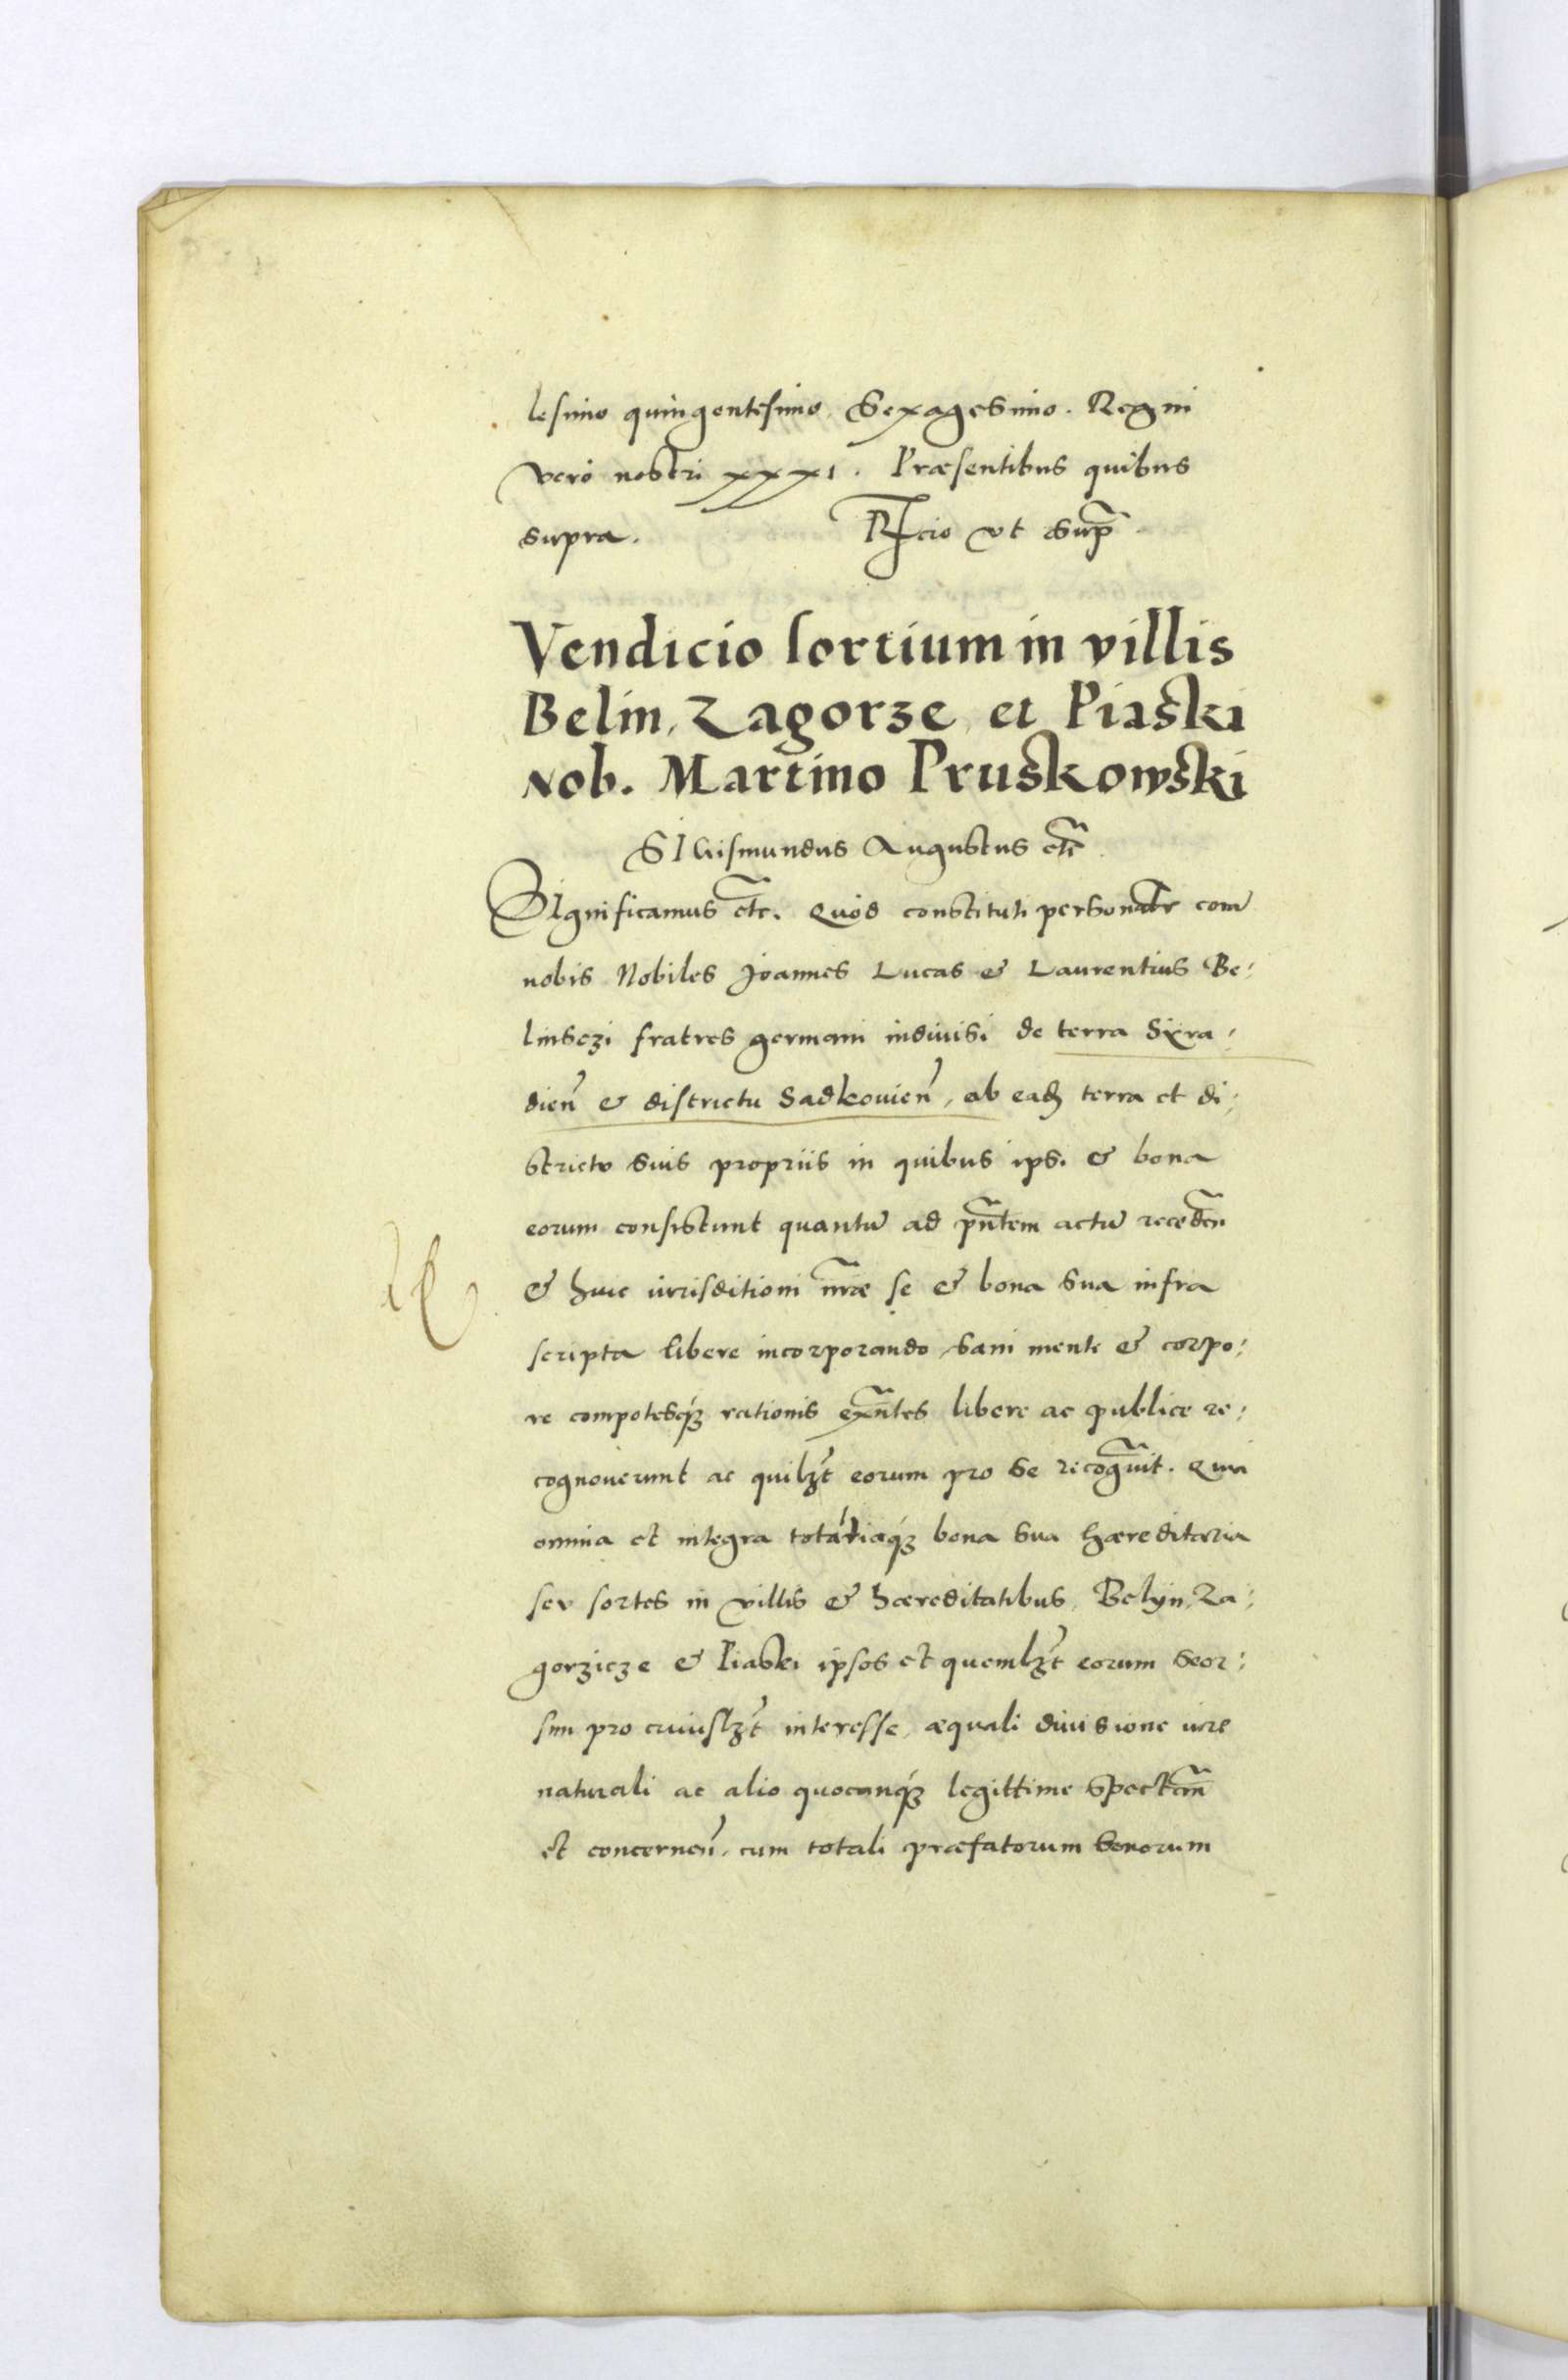 lesimo quingentesimo Sexagesimo. Regni
vero nostri xxxi. Praesentibus quibus
supra. Rcio vt supra
Vendicio sortium in villis
Belin, Zagorze, et Piaski
nob. Martino Pruskowski
SIGismundus Augustus etc
SIgnificamus etc. Quod constituti personalr coram
nobis Nobiles Joannes Lucas & Laurentius Be:
linsczi fratres germani indiuisi de terra Syra:
dien̄ & districtu Sadkouien̄, ab eadem terra et di:
stricto suis propriis in quibus ipsi & bona
eorum consistunt quantū ad pn̄tem actū receden̄
& huic iurisditioni nr̄ae se & bona sua infra
scripta libere incorporando, sani mente & corpo:
re compotesq́ꝫ rationis exn̄tes libere ac publice re:
cognouerunt ac quilꝫt eorum pro se recogn̄uit. Quia
omnia et integra totaliaq́ꝫ bona sua haereditaria
seu sortes in villis & haereditatibus, Belyn, Za:
gorzicze & Piaski ipsos et quemlꝫt eorum seor:
sim pro cuiuslꝫt interesse, aequali diuisione iure
naturali ac alio quocunq́ꝫ legittime spectan̄
et concernen̄, cum totali praefatorum bonorum